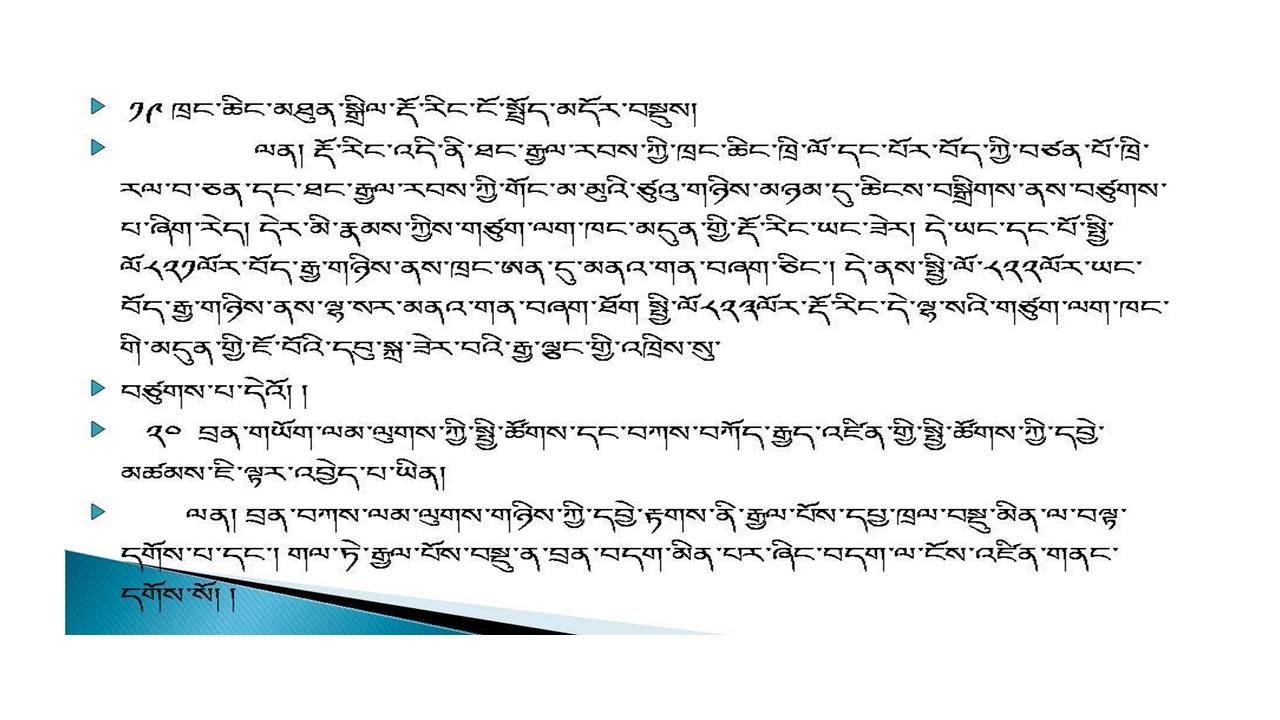 ༡༩ ཁྲང་ཆིང་མཐུན་སྒྲིལ་རྡོ་རིང་ངོ་སྤྲོད་མདོར་བསྡུས།
ལན། རྡོ་རིང་འདི་ནི་ཐང་རྒྱལ་རབས་ཀྱི་ཁྲང་ཆིང་ཁྲི་ལོ་དང་པོར་བོད་ཀྱི་བཙན་པོ་ཁྲི་
རལ་བ་ཅན་དང་ཐང་རྒྱལ་རབས་ཀྱི་གོང་མ་མུའི་ཙུའུ་གཉིས་མཉམ་དུ་ཆིངས་བསྒྲིགས་ནས་བཙུགས་
པ་ཞིག་རེད། དེར་མི་རྣམས་ཀྱིས་གཙུག་ལག་ཁང་མདུན་གྱི་རྡོ་རིང་ཡང་ཟེར། དེ་ཡང་དང་པོ་སྤྱི་
ལོ༨༢༡ལོར་བོད་རྒྱ་གཉིས་ནས་ཁྲང་ཨན་དུ་མནའ་གན་བཞག་ཅིང་། དེ་ནས་སྤྱི་ལོ་༨༢༢ལོར་ཡང་
བོད་རྒྱ་གཉིས་ནས་ལྷ་སར་མནའ་གན་བཞག་ཐོག སྤྱི་ལོ༨༢༣ལོར་རྡོ་རིང་དེ་ལྷ་སའི་གཙུག་ལག་ཁང་
གི་མདུན་གྱི་ཇོ་བོའི་དབུ་སྐྲ་ཟེར་བའི་རྒྱ་ལྕང་གྱི་འཁྲིས་སུ་
བཙུགས་པ་དེའོ། །
༢༠ བྲན་གཡོག་ལམ་ལུགས་ཀྱི་སྤྱི་ཚོགས་དང་བཀས་བཀོད་རྒྱུད་འཛིན་གྱི་སྤྱི་ཚོགས་ཀྱི་དབྱེ་
མཚམས་ཇི་ལྟར་འབྱེད་པ་ཡིན།
ལན། བྲན་བཀས་ལམ་ལུགས་གཉིས་ཀྱི་དབྱེ་རྟགས་ནི་རྒྱལ་པོས་དཔྱ་ཁྲལ་བསྡུ་མིན་ལ་བལྟ་
དགོས་པ་དང་། གལ་ཏེ་རྒྱལ་པོས་བསྡུ་ན་བྲན་བདག་མིན་པར་ཞིང་བདག་ལ་ངོས་འཛིན་གནང་
དགོས་སོ། །